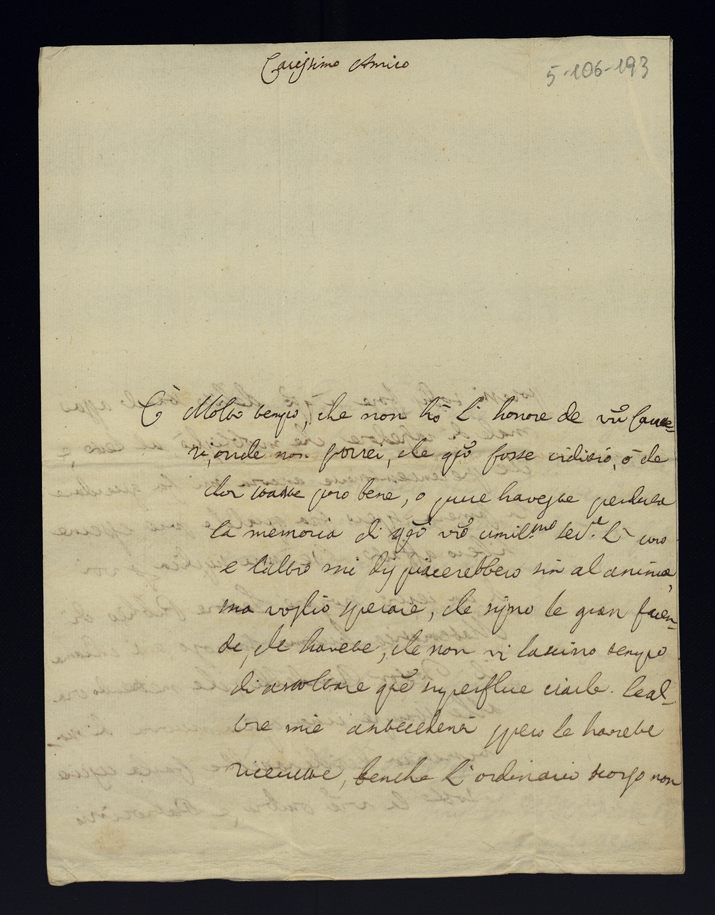 Carissimo Amico
5-106-193
È Molto tempo, che non hò l'honore de vr̃i Carat-
ri, onde non vorrei, che q̃to fosse indizio, ò che
non state poco bene, o pure haveste perduta
la memoria di q̃to vr̃o umil.mo Ser.e L'uno
e l'altro mi dispiacerebbero sin al anima,
ma voglio sperare, che sijno le gran facen-
de, che havete, che non vi lascino tempo
di ascoltare q̃te superflue ciarle. Le al-
tre mie antecedenti spero le havrete
ricevute, benche l'ordinario scorso non